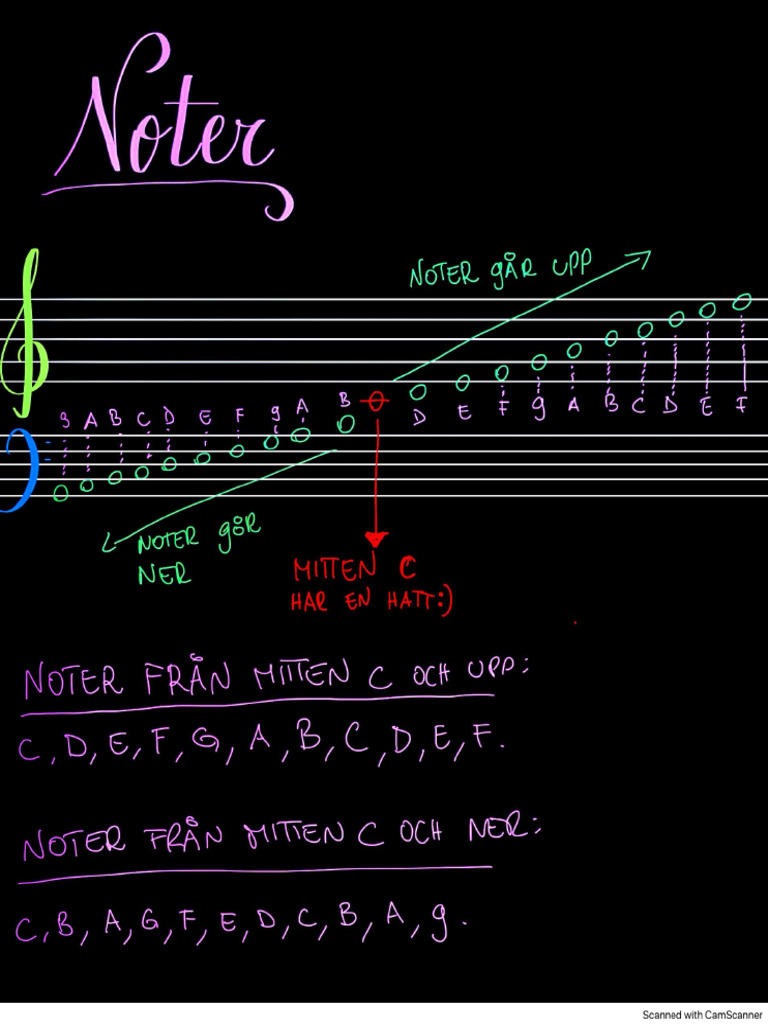 Noter
NOTER GÅR UPP
g A B C D E F g A B
D E F g A B C D E F
NOTER GÅR
NER
MITTEN C
HAR EN HATT:)
NOTER FRÅN MITTEN C OCH UPP:
C, D, E, F, G, A, B, C, D, E, F.
NOTER FRÅN MITTEN C OCH NER:
C, B, A, G, F, E, D, C, B, A, g.
Scanned with CamScanner